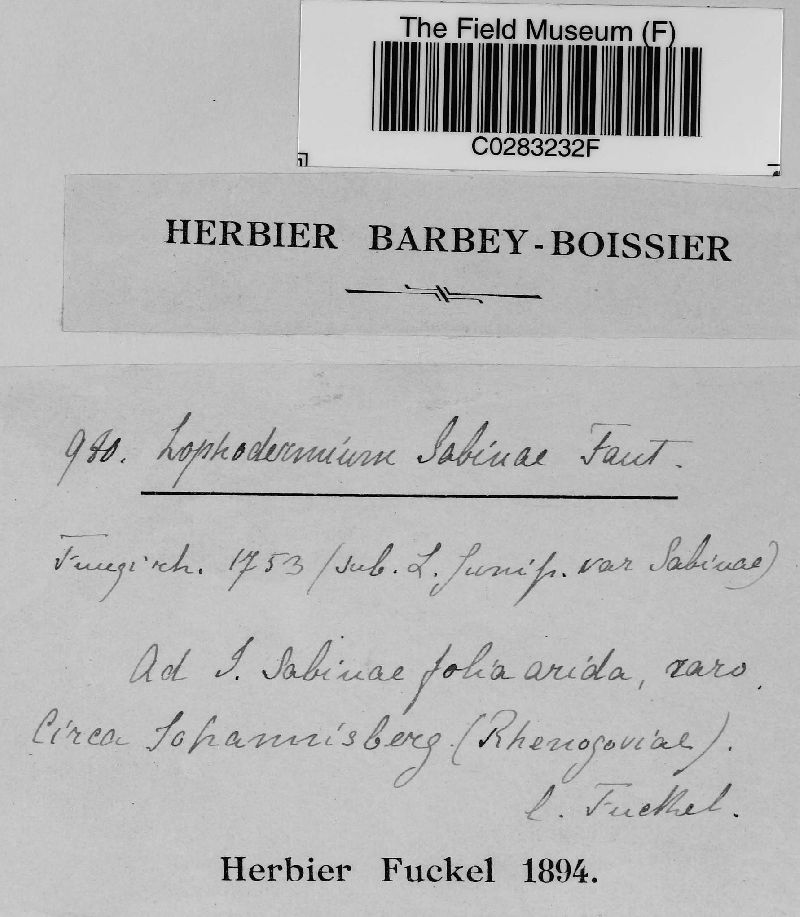 The Field Museum (F)
C0283232F
HERBIER BARBEY-BOISSIER
980. Lophodermium Sabinae Faut.
Fungi rh. 1753 (sub. L. Junip. var Sabinae)
Ad J. Sabinae folia arida, raro.
Circa Johannisberg (Rhenogoviae).
l. Fuckel.
Herbier Fuckel 1894.